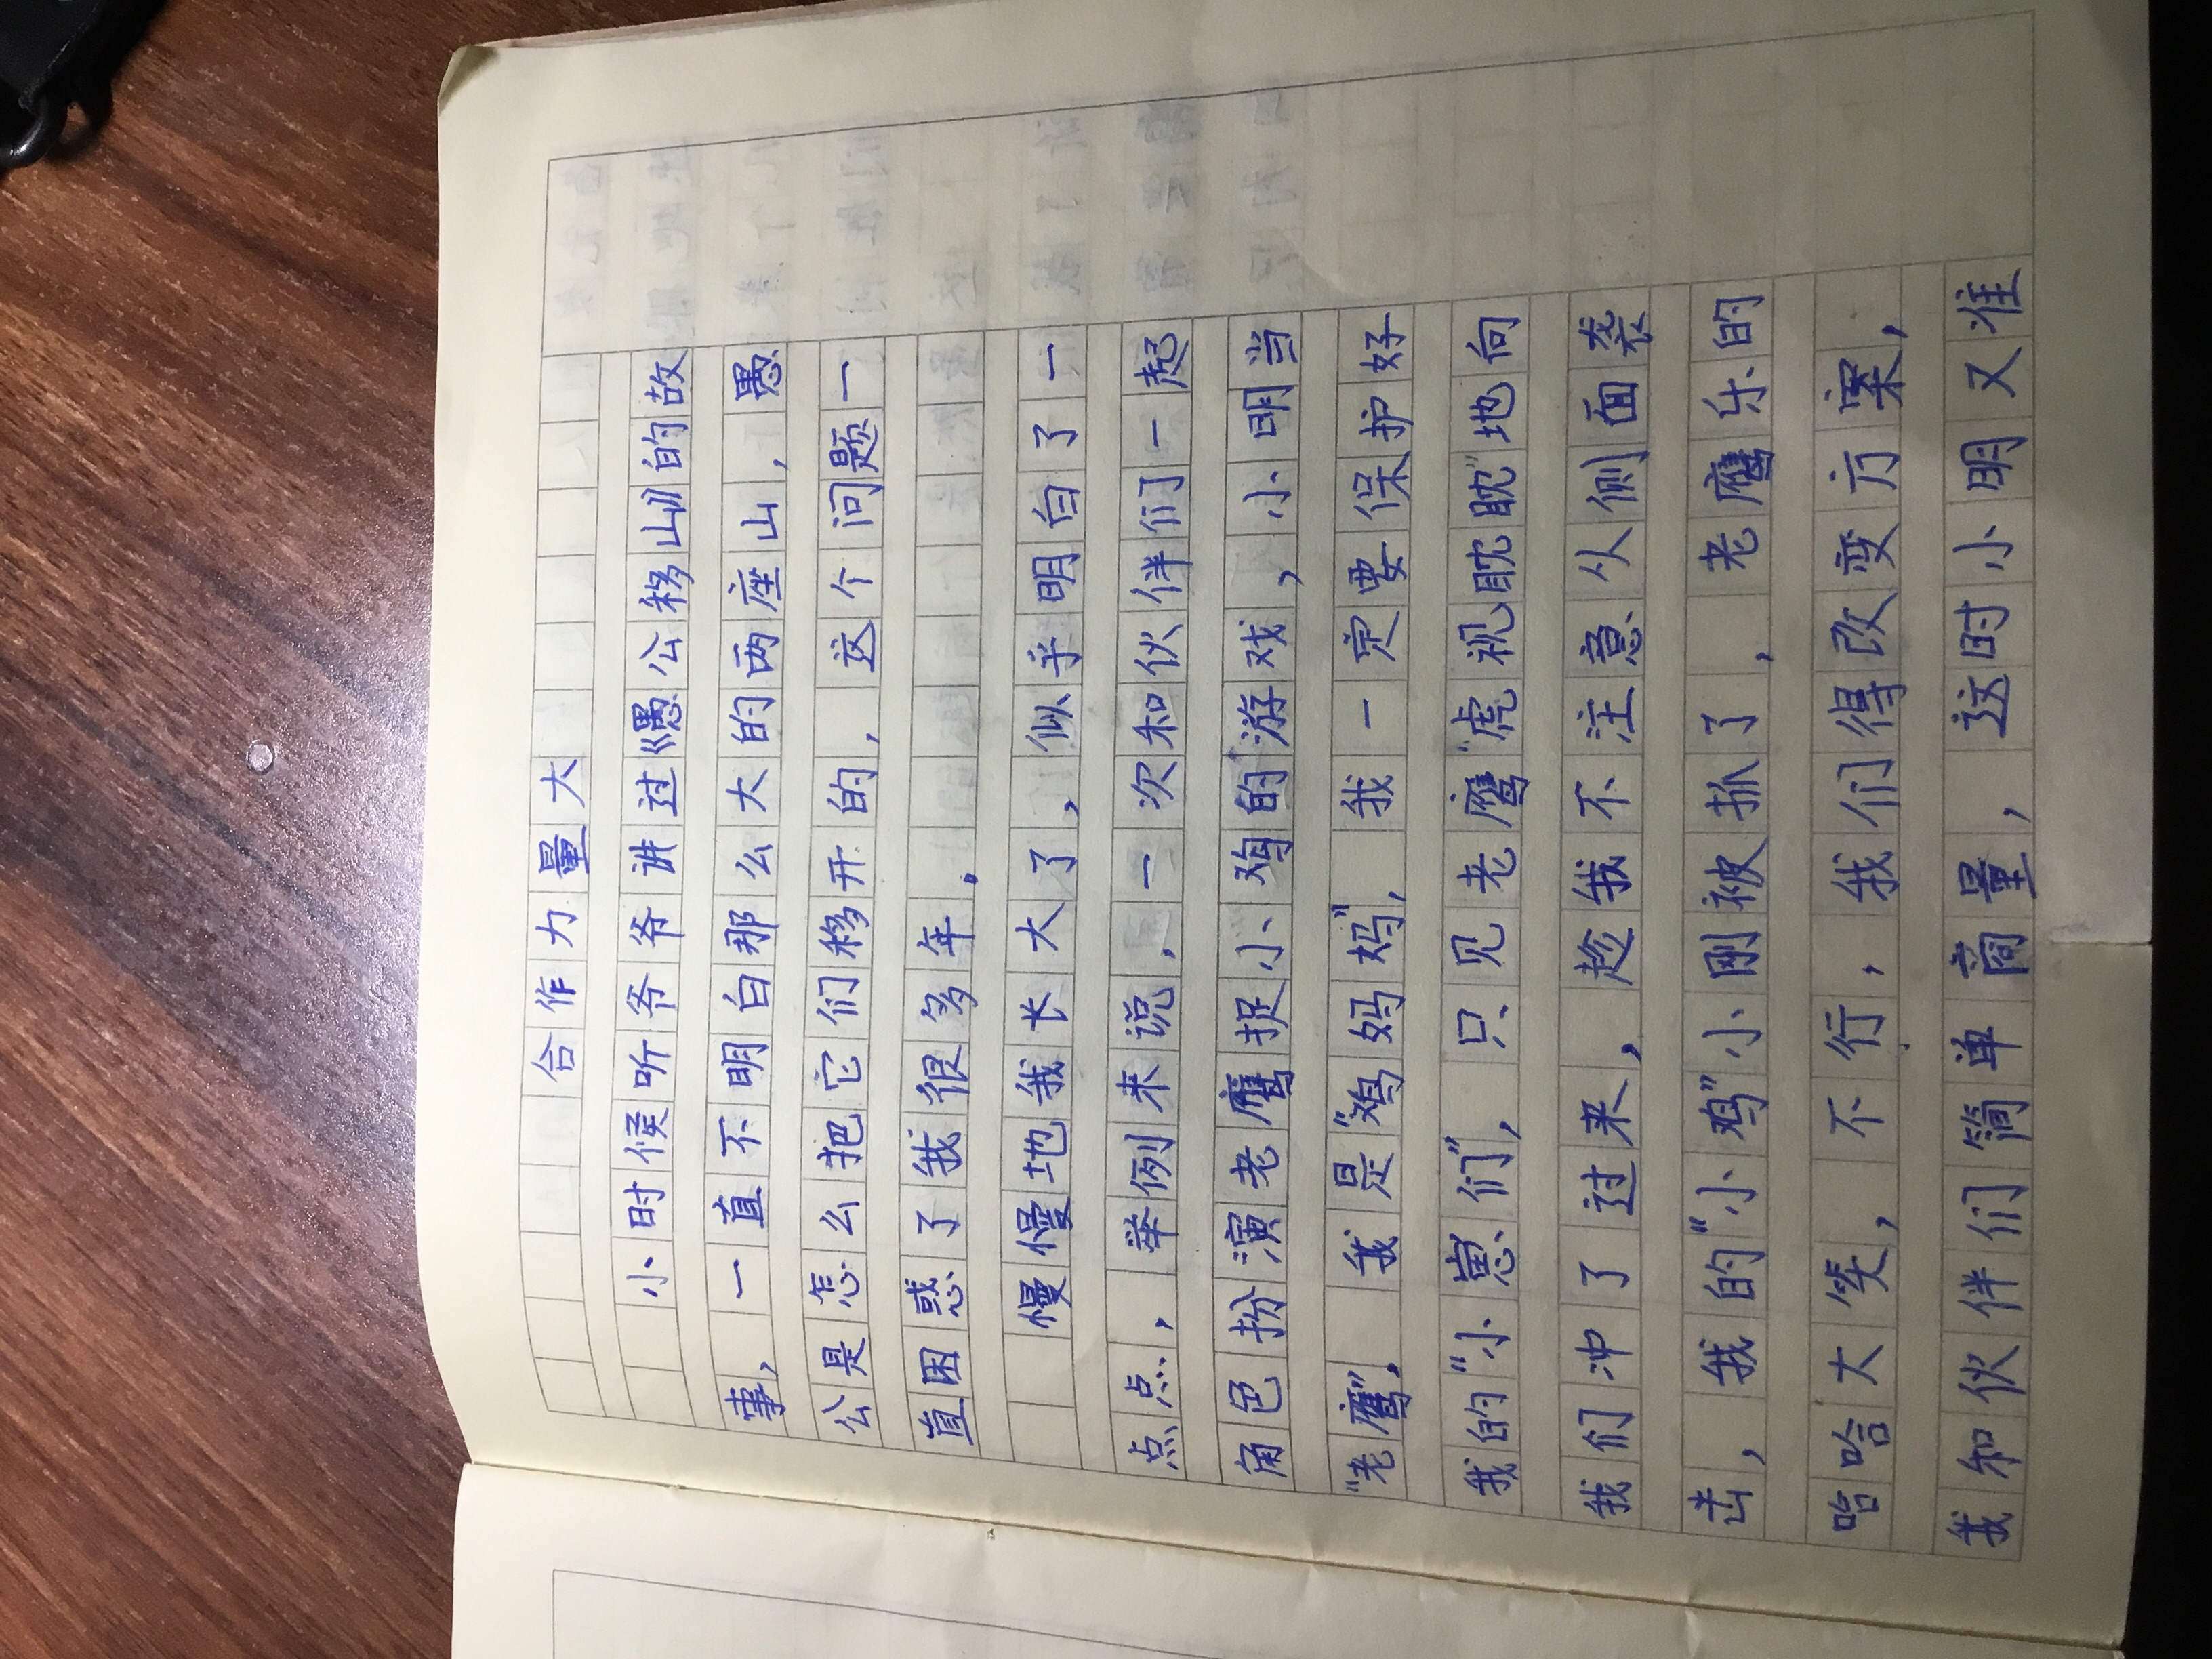 合作力量大
小时候听爷爷讲过《愚公移山》的故
事，一直不明白那么大的两座山，愚
公是怎么把它们移开的，这个问题一
直困惑了我很多年。
慢慢地我长大了，似乎明白了一
点点，举例来说，一次和伙伴们一起
角色扮演老鹰捉小鸡的游戏，小明当
“老鹰”，我是“鸡妈妈”，我一定要保护好
我的“小崽们”，只见老鹰“虎视眈眈”地向
我们冲了过来，趁我不注意从侧面袭
击，我的“小鸡”小刚被抓了，老鹰乐的
哈哈大笑，不行，我们得改变方案，
我和伙伴们简单商量，这时小明又准